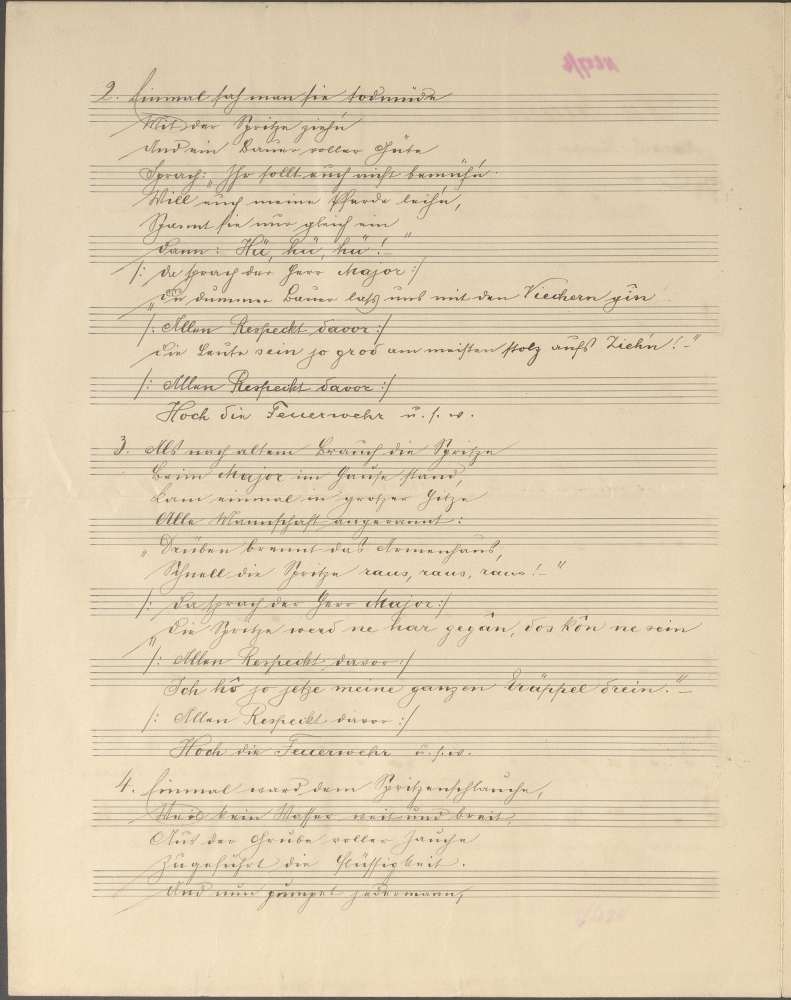 2. Einmal sah man sie todmüde
Mit der Spritze ziehn
Und ein Bauer voller Güte
Sprach: „Ihr sollt euch nicht bemühn
Will euch meine Pferde leihn,
Spannt sie nur gleich ein
Dann: Hü, hü, hü!"
/: Da sprach der Herr Major :/
„Du dummer Bauer lass uns mit den Viechern gin
/: Allen Respeckt davor :/
Die Leute sein jo grod am meisten stolz aufs Ziehn! –"
/: Allen Respeckt davor :/
Hoch die Feuerwehr u. s. w.
3. Als nach altem Brauch die Spritze
Beim Major im Hause stand,
Kam einmal in grosser Hitze
Alle Mannschaft angerannt:
„Drüben brennt das Armenhaus,
Schnell die Spritze raus, raus, raus! –"
/: Da sprach der Herr Major :/
„Die Spritze werd ne har gegân, dos kôn ne sein
/: Allen Respeckt davor :/
Ich hô jo jetze meine ganzen Äräppel drein." –
/: Allen Respeckt davor :/
Hoch die Feuerwehr u. s. w.
4. Einmal ward dem Spritzenschlauche,
Weil kein Wasser weit und breit,
Aus der Grube voller Jauche
Zugeführt die Flüssigkeit.
Und nun pumpet jedermann,